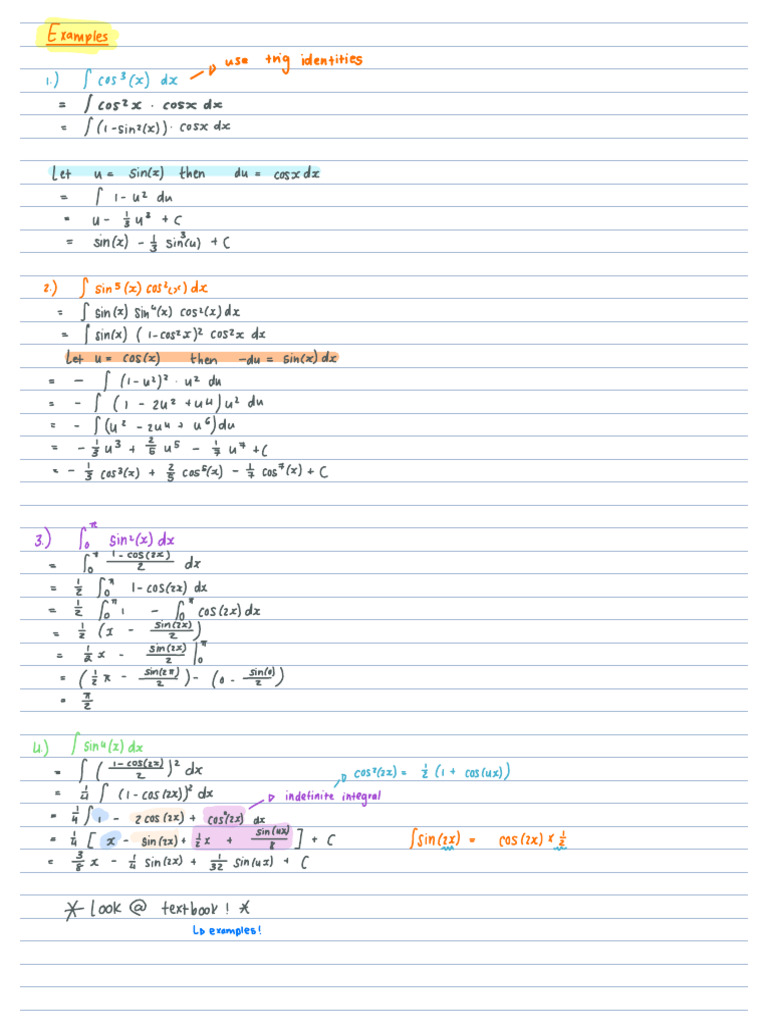 Examples
use trig identities
1.) ∫ cos³(x) dx
= ∫ cos²x · cosx dx
= ∫ (1-sin²(x)) · cosx dx
Let u = sin(x) then du = cosx dx
= ∫ 1 - u² du
= u - 1/3 u³ + C
= sin(x) - 1/3 sin³(u) + C
2.) ∫ sin⁵(x) cos²(x) dx
= ∫ sin(x) sin⁴(x) cos²(x) dx
= ∫ sin(x) (1-cos²x)² cos²x dx
Let u = cos(x) then -du = sin(x) dx
= - ∫ (1-u²)² · u² du
= - ∫ (1 - 2u² + u⁴) u² du
= - ∫ (u² - 2u⁴ + u⁶) du
= - 1/3 u³ + 2/5 u⁵ - 1/7 u⁷ + C
= - 1/3 cos³(x) + 2/5 cos⁵(x) - 1/7 cos⁷(x) + C
3.) ∫₀^π sin²(x) dx
= ∫₀^π (1-cos(2x))/2 dx
= 1/2 ∫₀^π 1-cos(2x) dx
= 1/2 ∫₀^π 1 - ∫₀^π cos(2x) dx
= 1/2 (x - sin(2x)/2)
= 1/2 x - sin(2x)/2 |₀^π
= (1/2 π - sin(2π)/2) - (0 - sin(0)/2)
= π/2
4.) ∫ sin⁴(x) dx
= ∫ ((1-cos(2x))/2)² dx
cos²(2x) = 1/2 (1 + cos(4x))
= 1/4 ∫ (1-cos(2x))² dx
indefinite integral
= 1/4 ∫ 1 - 2cos(2x) + cos²(2x) dx
= 1/4 [x - sin(2x) + 1/2 x + sin(4x)/8] + C
∫sin(2x) = cos(2x) * 1/2
= 3/8 x - 1/4 sin(2x) + 1/32 sin(4x) + C
* Look @ textbook! *
↳ examples!